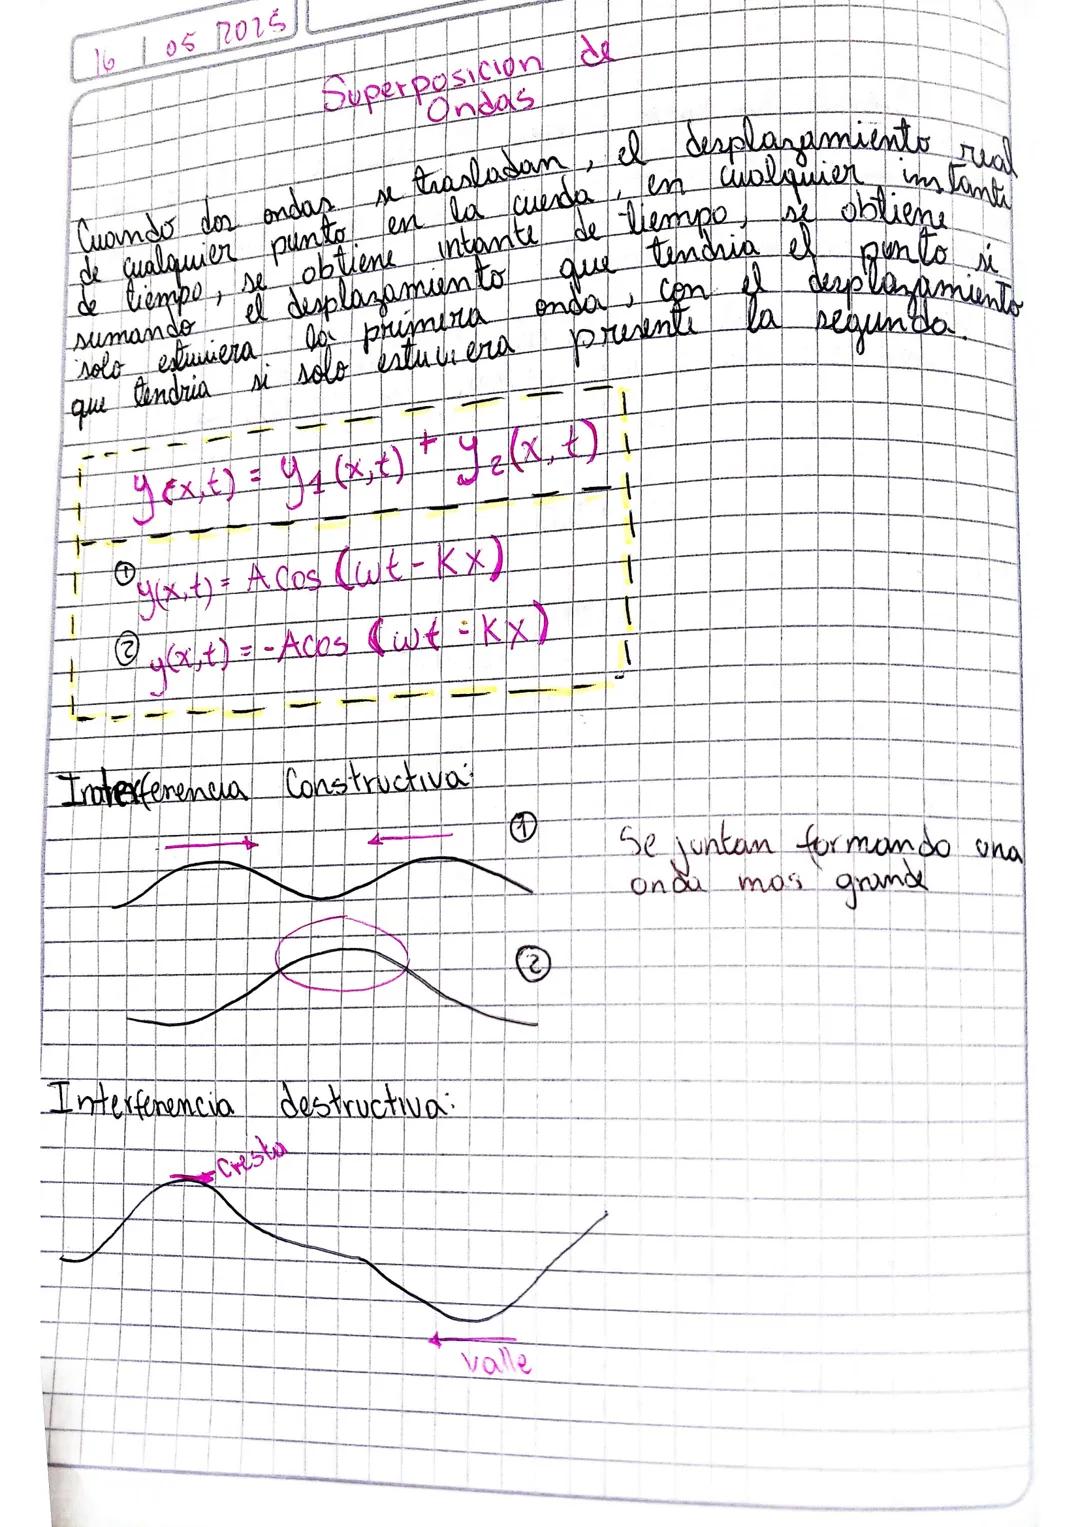 16 | 05 2025
Superposicion de
Ondas
Cuando dos ondas se trasladan, el desplazamiento real
de cualquier punto en la cuerda, en cualquier instante
de tiempo, se obtiene intante de tiempo, se obtiene
sumando el desplazamiento que tendria el punto si
solo estuviera la primera onda, con el desplazamiento
que tendria si solo estuviera presente la segunda.
y(x,t) = y1(x,t) + y2(x,t)
① y(x,t) = A Cos (wt - Kx)
② y(x,t) = -Acos (wt - Kx)
Interferencia Constructiva:
①
Se juntan formando una
onda mas grande
②
Interferencia destructiva:
Cresta
Valle